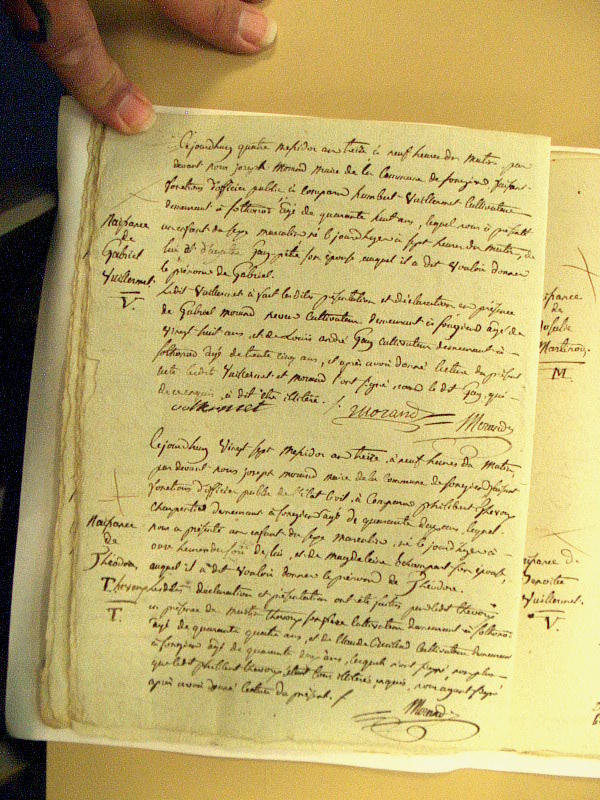 Cejourdhuy quatre messidor an treize à neuf heures du matin, par
devant nous joseph Morand maire de la Commune de songieu faisant
fonctions d'officier public à comparu humbert Vuillermet Cultivateur
demeurant à sothonod âgé de quarante huit ans, lequel nous à présenté
un enfant du sexe masculin né le jourdhyer à sept heures du matin, de
lui et Gay son épouse auquel il a dit vouloir donner
le prénom de Gabriel.
Naissance
de
Gabriel
Vuillermet
V.
ledit Vuillermet à fait lesdites présentation et déclaration en présence
de Gabriel morand neveu Cultivateur demeurant à songieu âgé de
vingt huit ans, et de Louis andré Gay cultivateur demeurant à
sothonod âgé de trente cinq ans, et après avoir donné lecture du présent
acte ledit Vuillermet et morand l'ont signé, non le dit Gay, qui
de ce requis, a dit être illitéré.
vuillermet Morand Morand
Cejourdhuy Vingt sept messidor an treize, à neuf heures du matin
par devant nous joseph morand maire de la Commune de songieu faisant
fonctions d'officier public de l'état Civil, à Comparu philibert thevony
Charpentier demeurant à songieu âgé de quarante deux ans, lequel
nous a présenté un enfant du sexe masculin, né le jourdhyer à
onze heures du soir de lui, et de magdeleine son épouse,
auquel il a dit vouloir donner le prénom de Théodore.
Naissance
de
Théodore
Thevony
T.
lesdites déclaration et présentation ont été faites par ledit thevony
en présence de thevony son frère Cultivateur demeurant à sothonod
âgé de quarante quatre ans, et de Claude Cultivateur demeurant
à songieu âgé de quarante deux ans, lesquels n'ont signé, non plus
que ledit philibert thevony, étant tous illitérés, requis, nous ayant signé
après avoir donné lecture du présent.
Morand
Martinod
M.
naissance de
Benoite
Vuillermet
V.